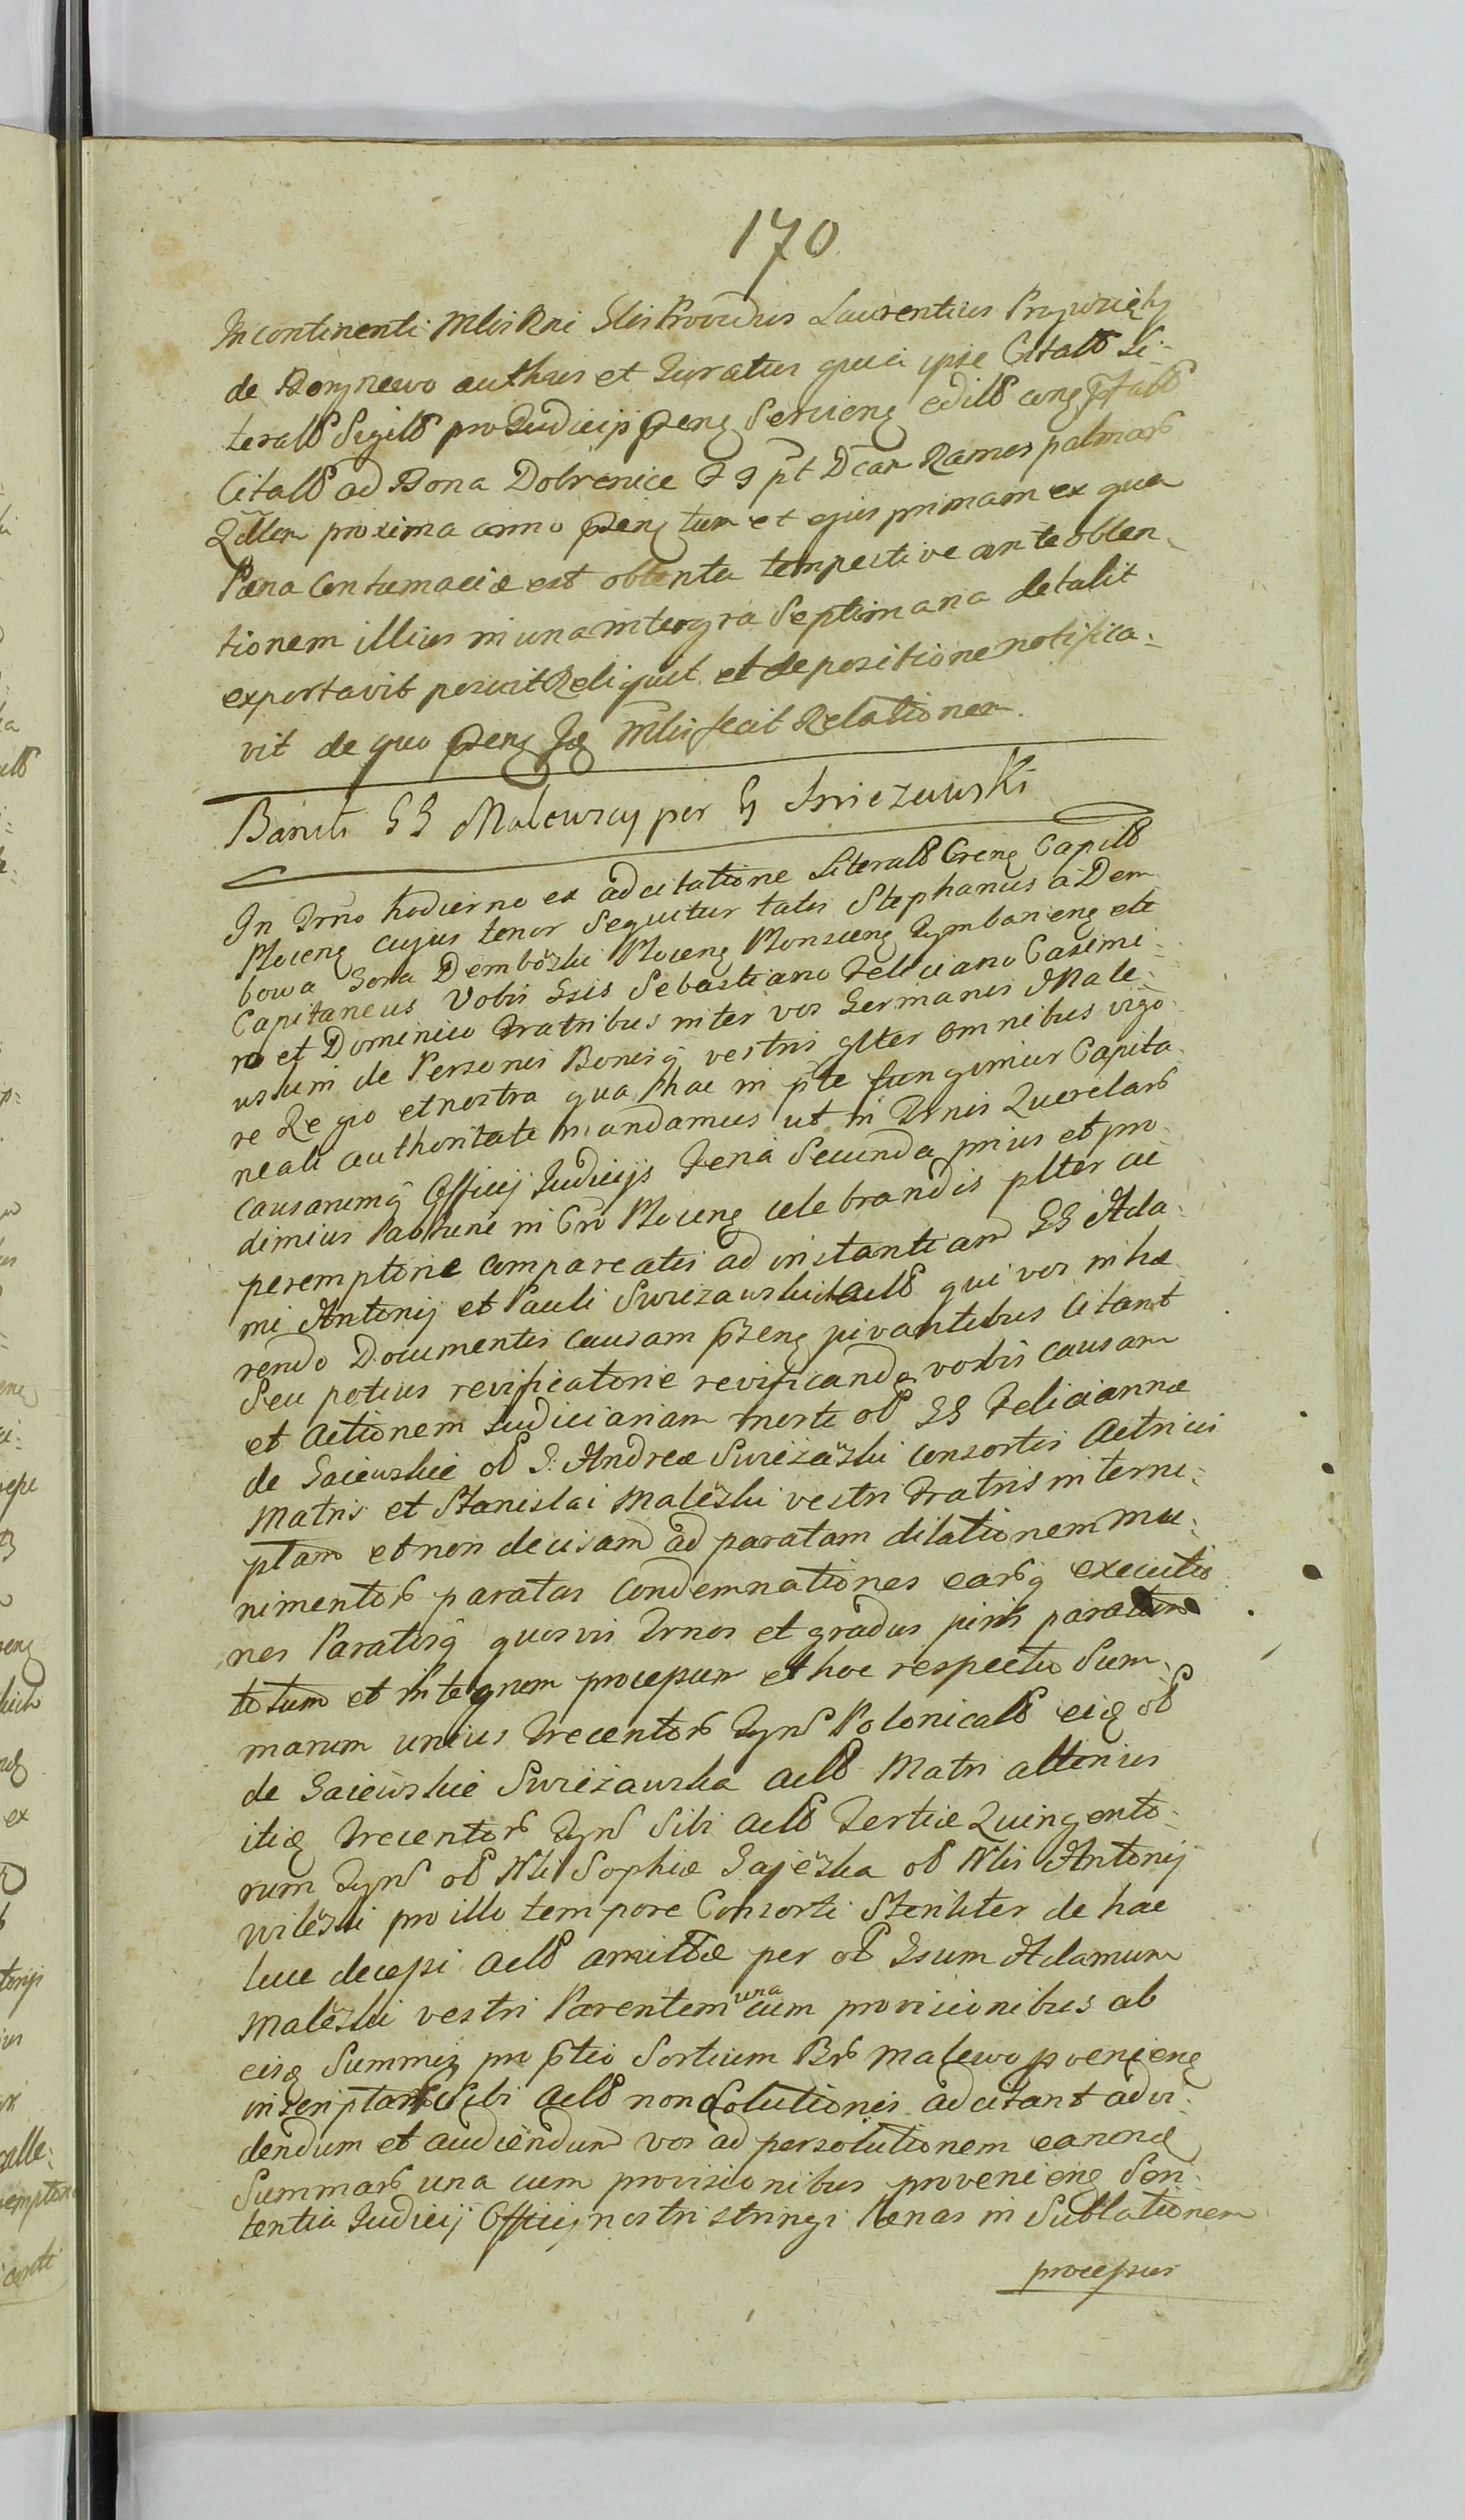 170
Incontinenti Mlis Rni Slis Providus Laurentius
de authus et Juratus quia ipse Citalb Li-
teralb Sigilb pro Judicijs Pzeng Servieng edilb
Citalb ad Bona Dobrenice pt Dcam Ramos palmarb
proxima anno Pzeng tum et ejus primam ex qua
Pæna Contumaciæ est obtenta tempestive ante obten-
tionem illius in una integra Septimana detulit
exportavit posuit Reliquit et de positione notifica-
vit de quo Pzeng Jg Mlis fecit Relationem.
Baniti GG Malewscy per G Swiezawski
In Trno hodierno ex adcitatione Literalb Greng Capilb
Ploceng cujus tenor Sequitur talis Stephanus a Dem-
bowa Gora Dembőzki Ploceng Plonsceng Tymbarieng ete
Capitaneus Vobis Gsis Sebastiano Feliciano Casimi-
ro et Dominico Fratribus inter vos Germanis Male-
uskim de Personis Bonisq vestris glter omnibus vigo-
re Regio et nostra qua hac in pte fungimur Capita-
neali authoritate mandamus ut in Trnis Querelarb
causarumq Officij Judicijs Feria Secunda prius et pro-
dimius Paschue in Cro Ploceng celebrandis plter ac
peremptorie compareatis ad instantiam GG Ada-
mi Antonij et Pauli Swiezawskich Aclb qui vos inhæ-
rendo Documentis causam pzeng juvantibus Citant
Seu potius revificatorie revificandæ vobis causam
et Actionem Judiciariam morte olb GG Feliciannæ
de Gaiewskie olb G: Andreæ Swiezaűzki consortis Actricis
Matris et Stanislai Malěwzki vestri Fratris interru-
ptam et non decisam ad paratam dilationem mu-
nimentorb paratas Condemnationes earbq executio
nes Paratosq quosvis Trnos et gradus juris paratum
totum et integrum processum et hoc respectu Sum-
marum unius Trecentorb Fynb Polonicalb eidg olb
de Gaiewskie Swieżawska aclb Matri alterius
itidg Trecentorb Fynb Sibi aclb Tertiæ Quingento-
rum Fynb olb Nbl Sophiæ Gajeűzka olb Nbis Antonij
Wilěwzki pro illo tempore Consorti Steriliter de hac
luce decessi Aclb amittæ per olb Gsum Adamum
Malěwzki vestri Parentem una cum provisionibus ab
eisq Summis pro ptio Sortium Brb Malewo provenieng
inscriptarb Sibi aclb non Solutionis adcitant ad vi-
dendum et audiendum vos ad persolutionem earundg
Summarb una cum provisionibus provenieng Sen-
tentia Judicij Officij nostri stringi Pænas in Sublationem
processus